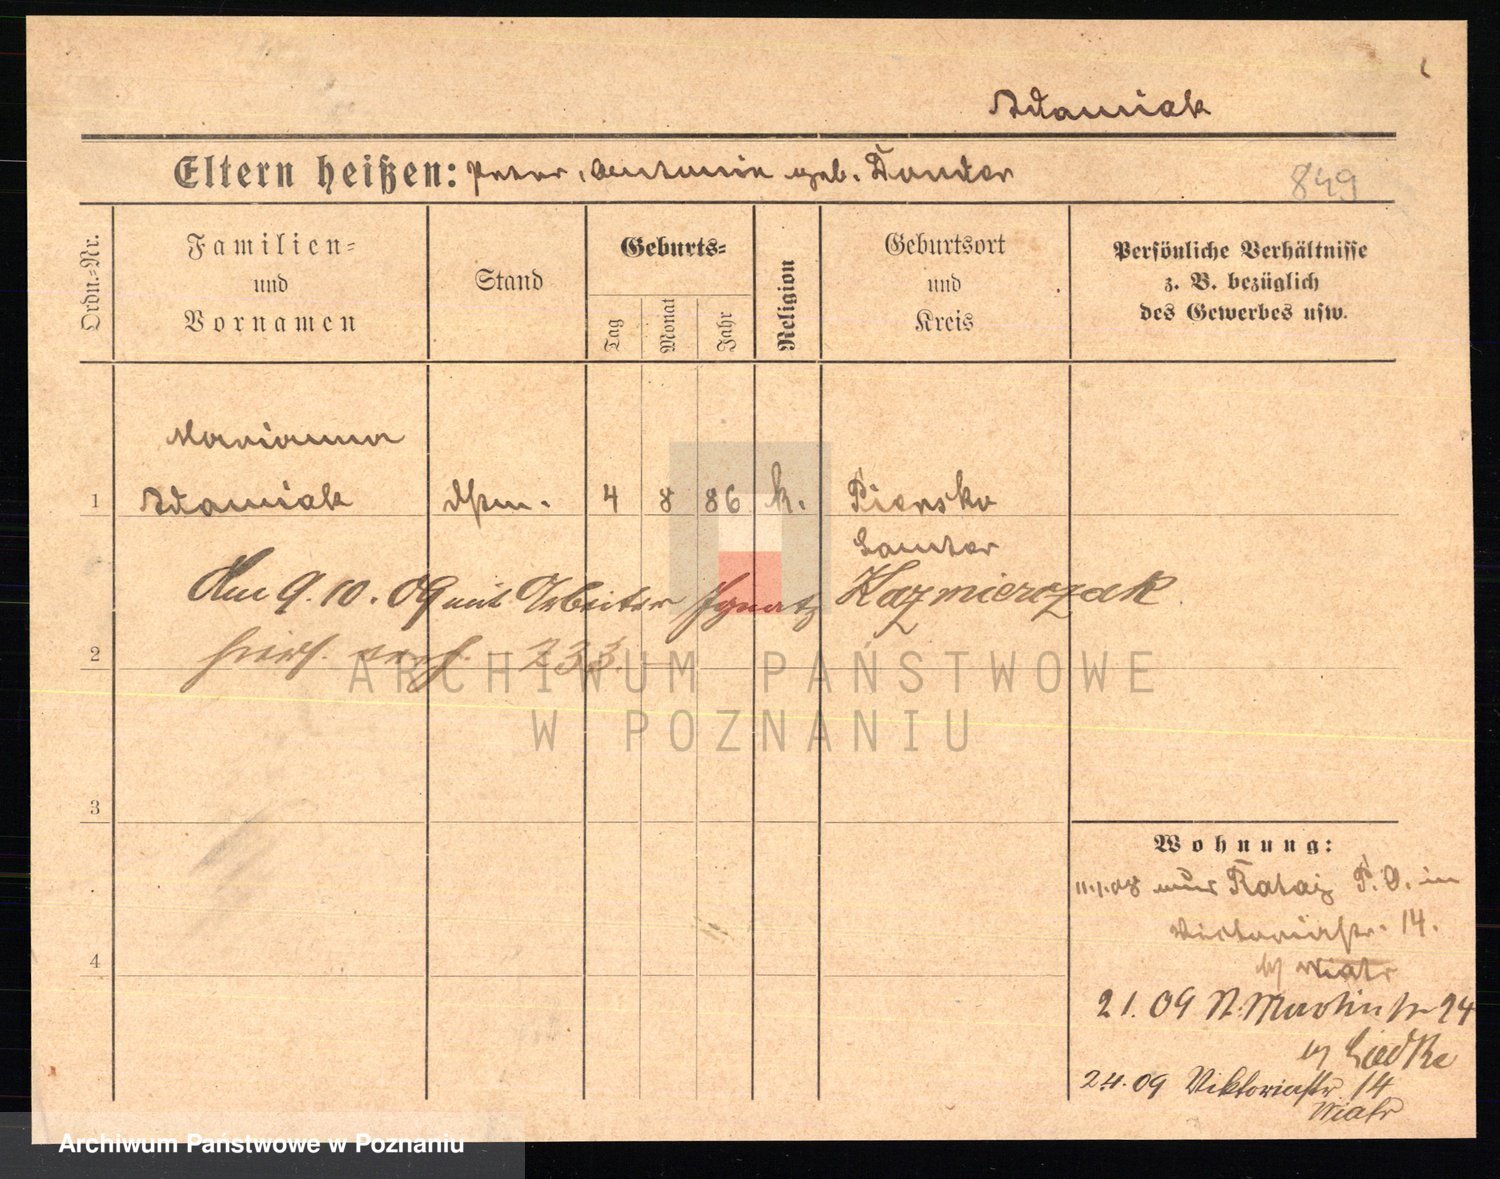 Adamiak
Eltern heißen: Peter, Antonie geb. Dander
849
Ordn.=Nr.
Familien=
und
Vornamen
Stand
Geburts=
Tag
Monat
Jahr
Religion
Geburtsort
und
Kreis
Persönliche Verhältnisse
z. B. bezüglich
des Gewerbes usw.
Marianna
1 Adamiak 4 8 86 k. Piersko
Samter
Am 9.10.09 mit Arbeiter Ignatz Kazmierczak
2 233.
3
4
Wohnung:
11.1.08 Rataj P. O. in
Victoriastr. 14.
b/ Wiatr
2 1. 09 St. Martinstr 24
b/ Liedke
24. 09 Viktoriastr. 14
Wiatr
ARCHIWUM PAŃSTWOWE
W POZNANIU
Archiwum Państwowe w Poznaniu